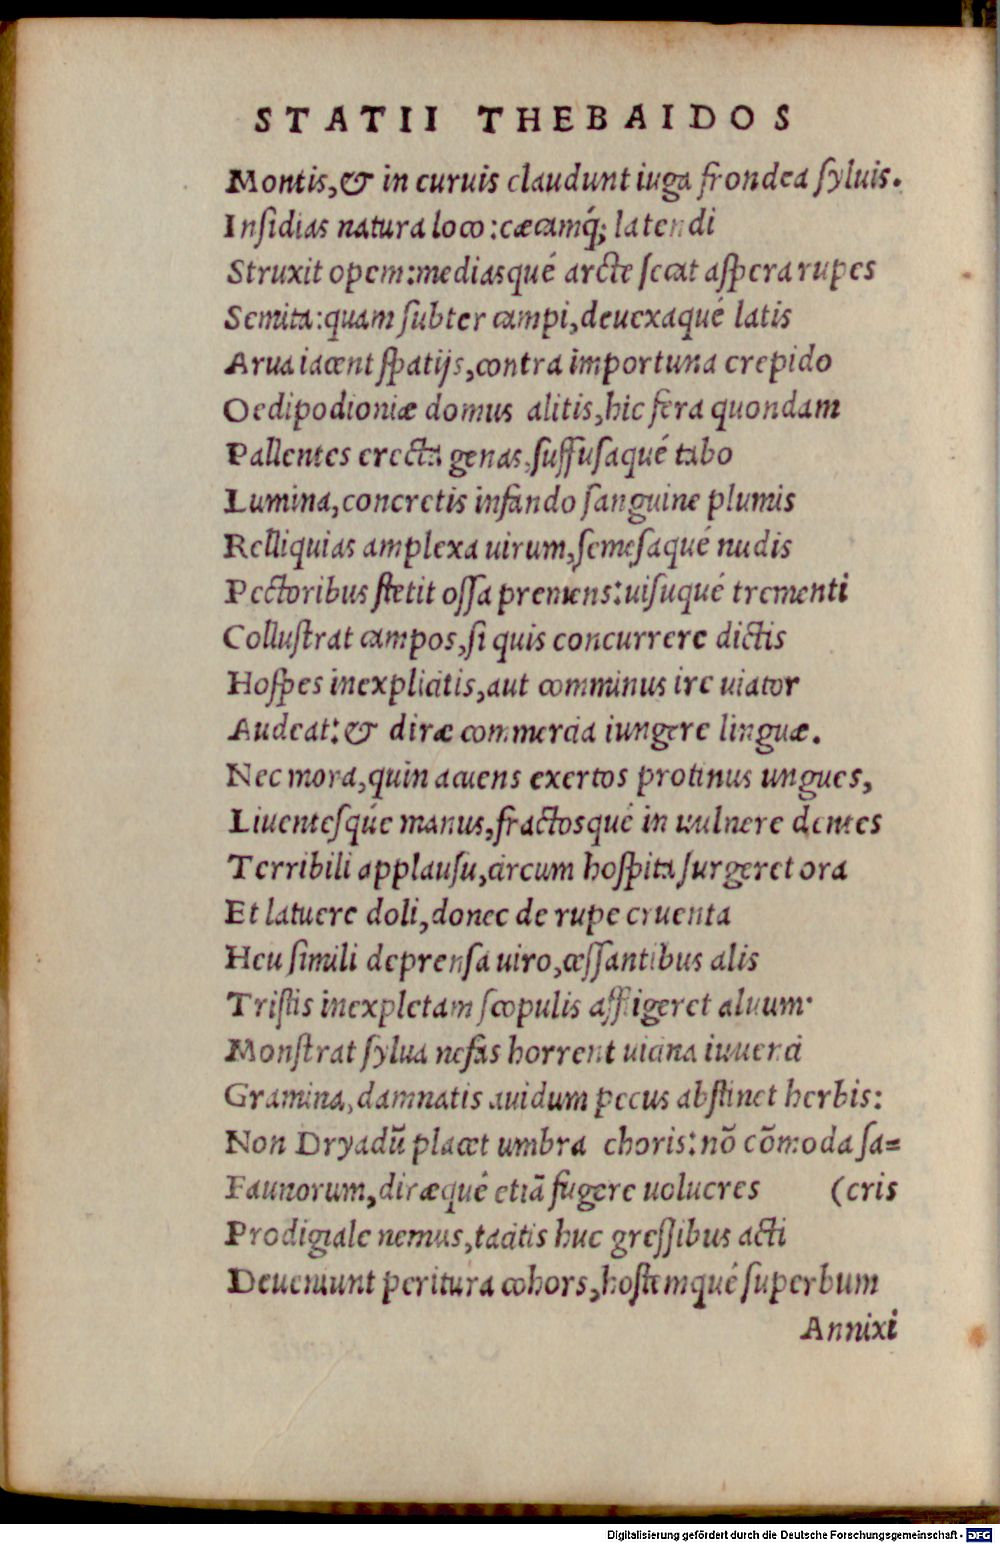 STATII THEBAIDOS
Montis,& in curuis claudunt iuga frondea syluis.
Insidias natura loco:cæcamq́; latendi
Struxit opem:mediasqué arcte secat aspera rupes
Semita:quam subter campi,deuexaqué latis
Arua iacent spatijs,contra importuna crepido
Oedipodioniæ domus alitis,hic fera quondam
Pallentes erecta genas,suffusaqué tabo
Lumina,concretis infando sanguine plumis
Relliquias amplexa uirum,semesaqué nudis
Pectoribus stetit ossa premens:uisuqué trementi
Collustrat campos,si quis concurrere dictis
Hospes inexplicitis,aut comminus ire uiator
Audeat:& diræ commercia iungere linguæ.
Nec mora,quin acuens exertos protinus ungues,
Liuentesqúe manus,fractosqué in uulnere dentes
Terribili applausu,circum hospita surgeret ora
Et latuere doli,donec de rupe cruenta
Heu simili deprensa uiro,cessantibus alis
Tristis inexpletam scopulis affligeret aluum.
Monstrat sylua nefas horrent uicina iuuenci
Gramina,damnatis auidum pecus abstinet herbis:
Non Dryadũ placet umbra choris:nõ cõmoda sa=
Faunorum,diræqué etiã fugere uolucres (cris
Prodigiale nemus,tacitis huc gressibus acti
Deueniunt peritura cohors,hostemqué superbum
Annixi
Digitalisierung gefördert durch die Deutsche Forschungsgemeinschaft - DFG